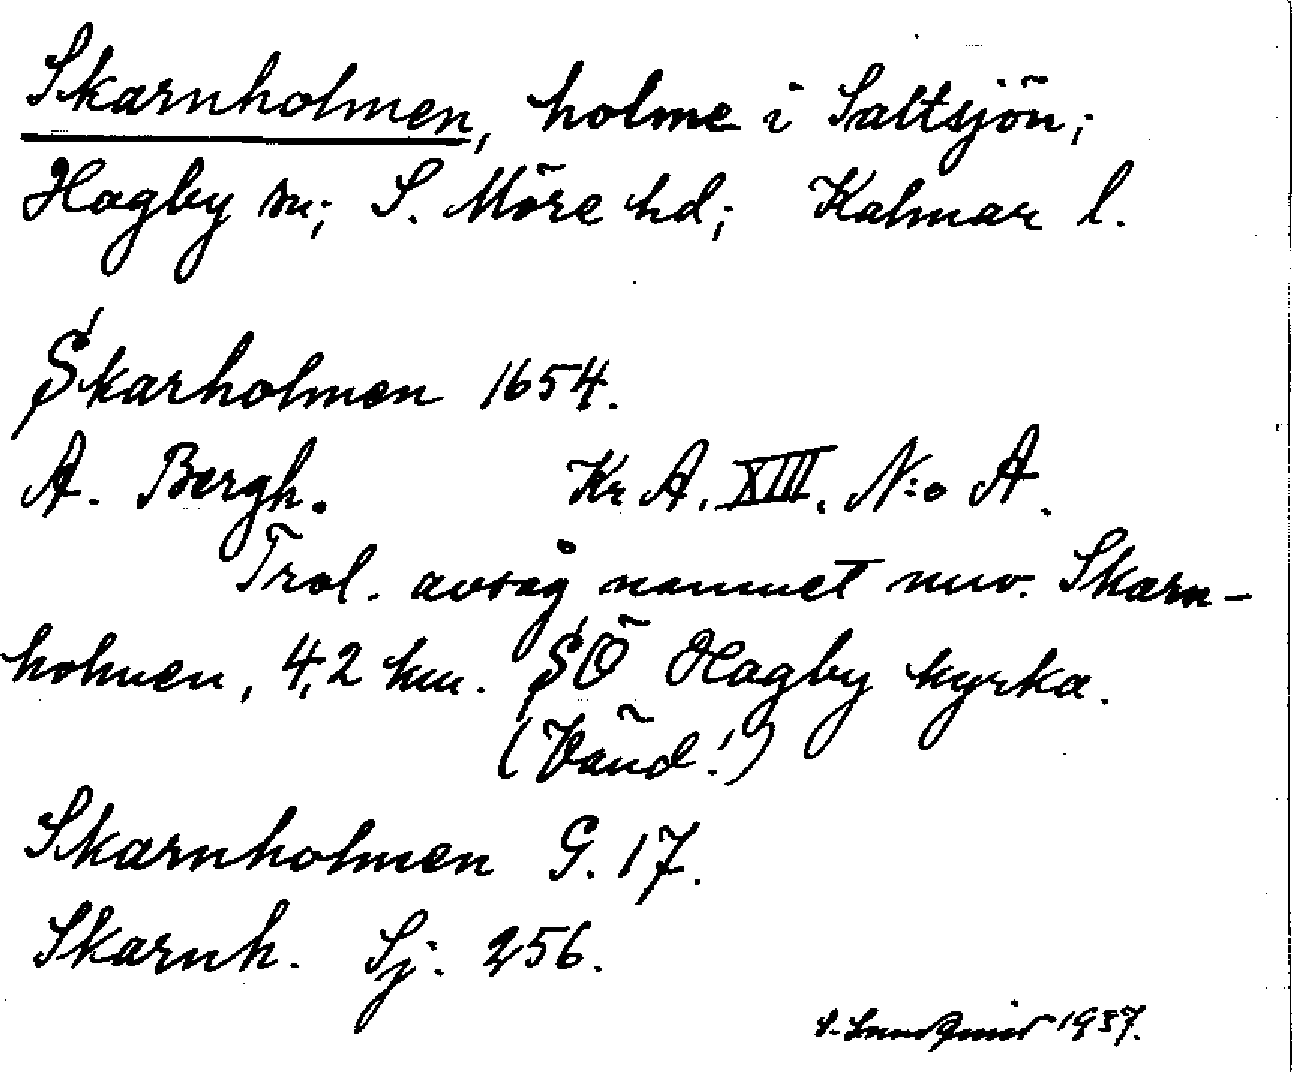 Skarnholmen, holme i Saltsjön;
Hagby sn; S. Möre hd; Kalmar l.
Skarholmen 1654.
A. Bergh. Kr A. XIII. N:o A.
Trol. avsåg namnet nuv. Skarn-
holmen, 4,2 km. SÖ Hagby kyrka.
(Vänd!)
Skarnholmen G. 17.
Skarnh. Sj. 256.
1937.